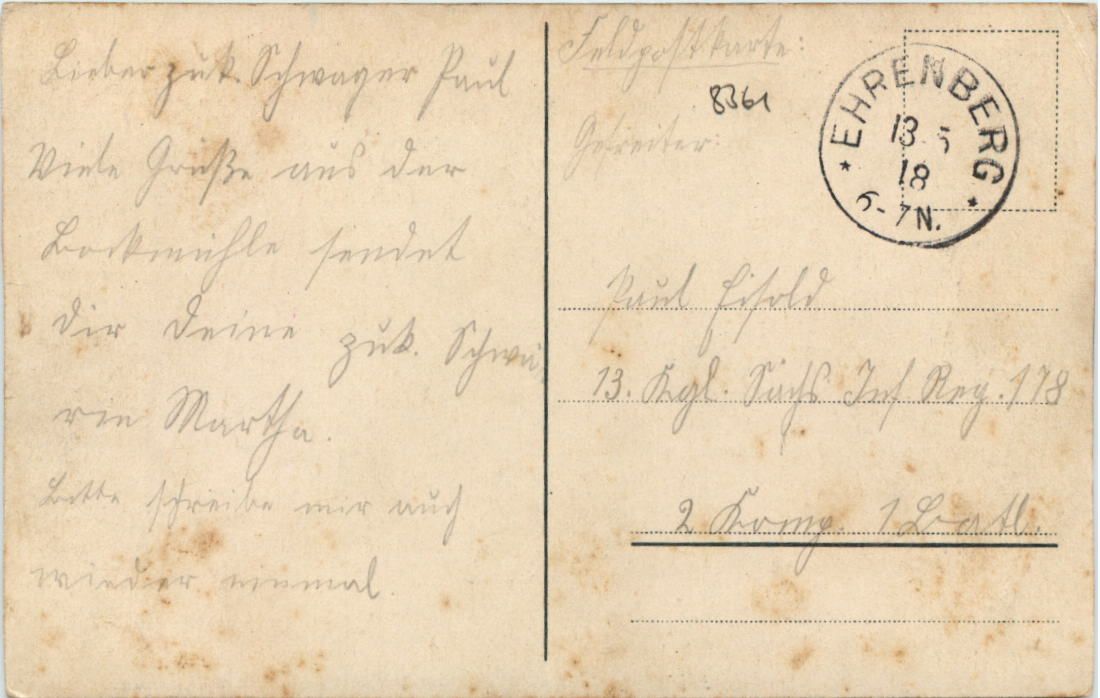 Lieber zuk. Schwager Paul
Viele Grüße aus der
Bockmühle sendet
Dir Deine zuk. Schwä
rin Martha.
Bitte schreibe mir auch
wieder einmal.
Feldpostkarte:
8361
Gefreiter:
EHRENBERG
13.5
18
6-7N.
Paul Eisold
13. Kgl. Sächs Inf Reg. 178
2 Komp. 1 Batl.